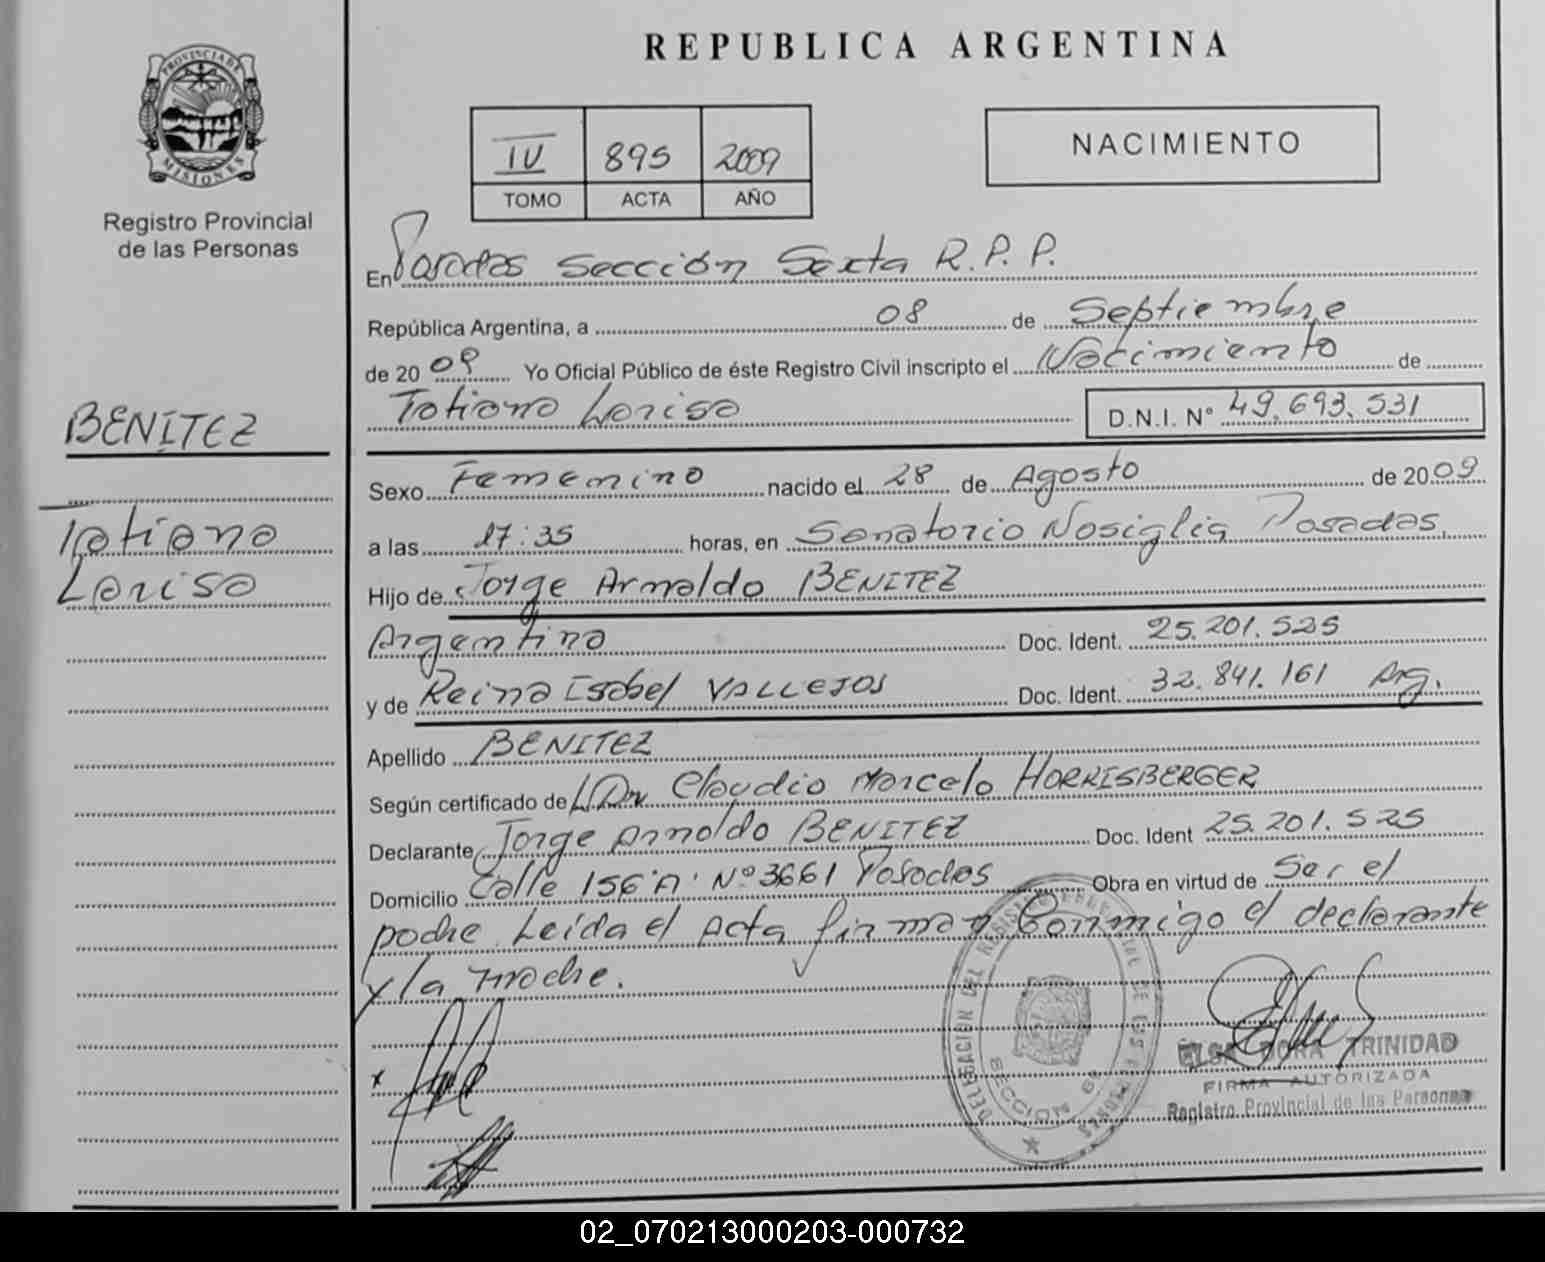 PROVINCIA DE
MISIONES
Registro Provincial
de las Personas
BENITEZ
Tatiana
Larisa
REPUBLICA ARGENTINA
IV 895 2009
TOMO ACTA AÑO
NACIMIENTO
En Posadas Sección Sexta R.P.P.
República Argentina, a 08 de Septiembre
de 2009 Yo Oficial Público de éste Registro Civil inscripto el Nacimiento de
Tatiana Larisa D.N.I. N° 49.693.531
Sexo Femenino nacido el 28 de Agosto de 2009
a las 17:35 horas, en Sanatorio Nosiglia Posadas.
Hijo de Jorge Arnaldo BENITEZ
Argentino Doc. Ident. 25.201.525
y de Reina Isabel VALLEJOS Doc. Ident. 32.841.161 Arg.
Apellido BENITEZ
Según certificado de Claudio Marcelo HORRISBERGER
Declarante Jorge Arnaldo BENITEZ Doc. Ident 25.201.525
Domicilio Calle 156 "A" Nº 3661 Posadas Obra en virtud de Ser el
padre. Leída el Acta firman Conmigo el declarante
y la madre.
DELEGACION DEL REGISTRO PROVINCIAL DE LAS PERSONAS
SECCION 6ª
ELSA DORA TRINIDAD
FIRMA AUTORIZADA
Registro Provincial de las Personas
02_070213000203-000732